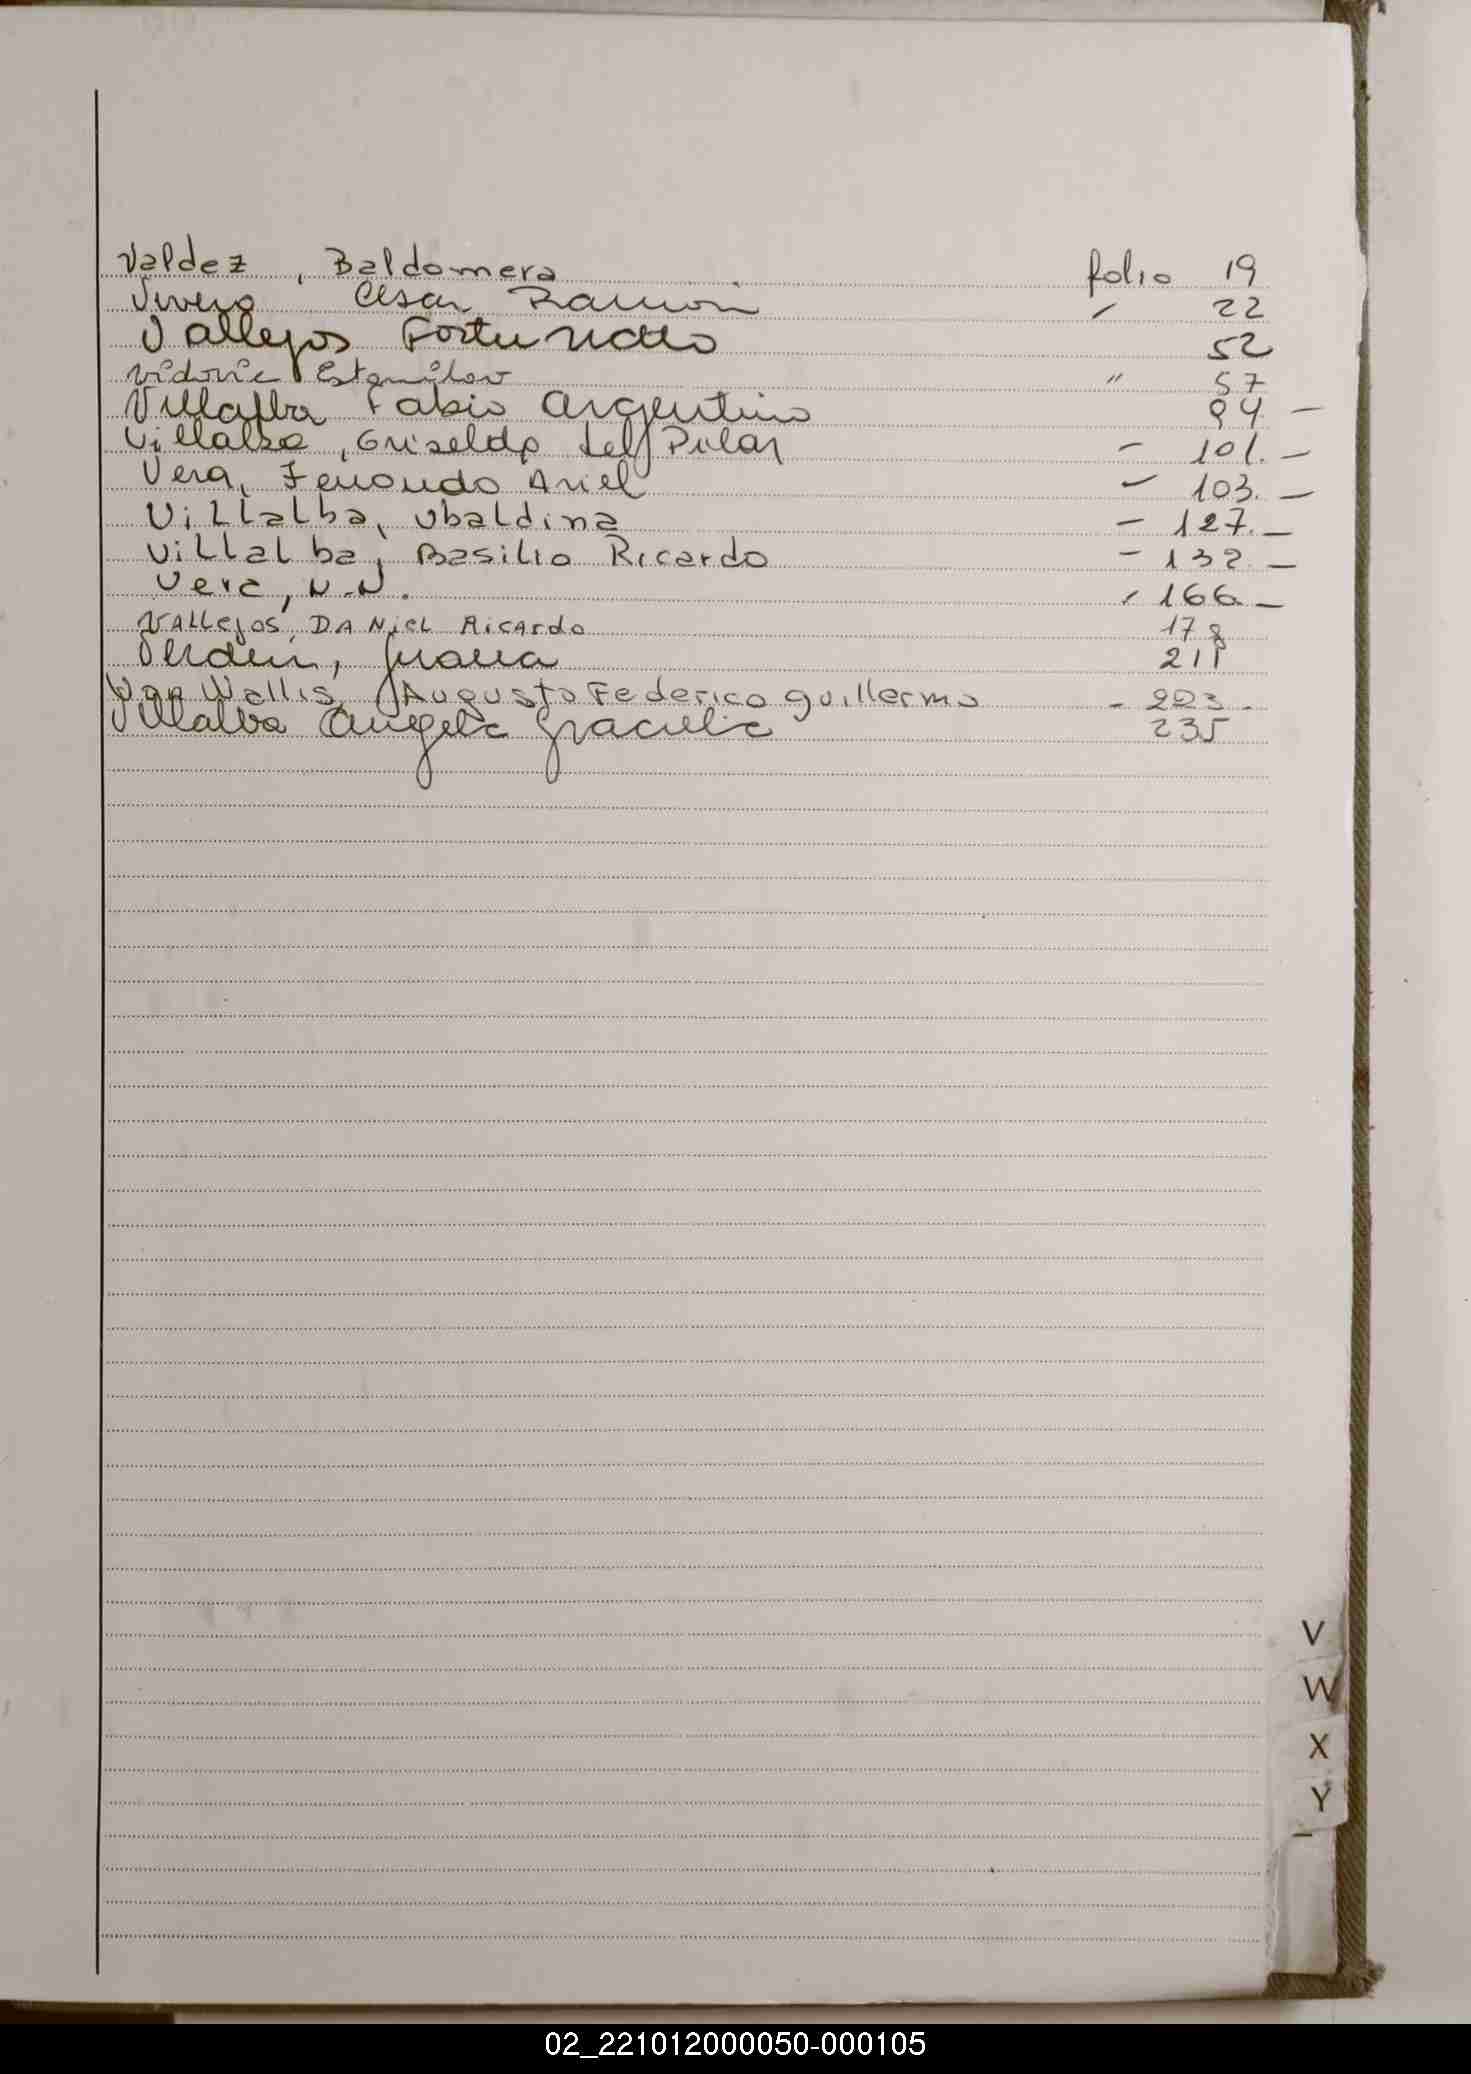 Valdez, Baldomera folio 19
Vivero Cesar Ramon " 22
Vallejos Fortunato 52
Vidovic Estanislav " 57
Villalba Fabio Argentino 94 -
Villalba, Griselda del Pilar - 101. -
Vera, Fernando Ariel - 103. -
Villalba, Ubaldina - 127. -
Villalba, Basilio Ricardo - 132. -
Vera, N.N. - 166 -
Vallejos, Daniel Ricardo 178
Juana 211
Van Wallis, Augusto Federico Guillermo - 223 -
Villalba Angela Graciela 235
V
W
X
Y
02_221012000050-000105